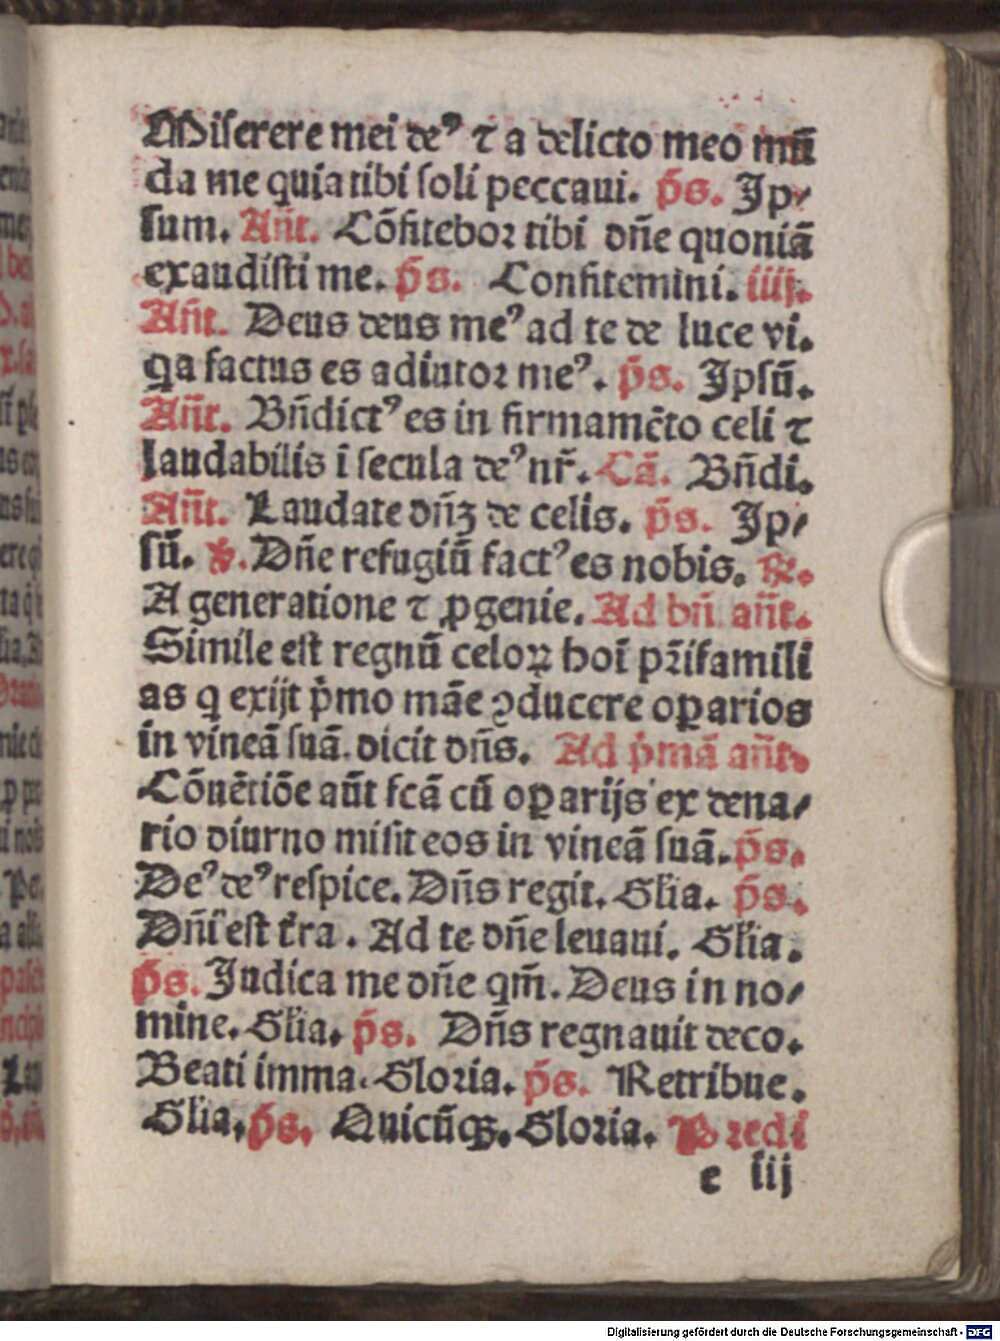 Miserere mei deꝰ ⁊ a delicto meo mū
da me quia tibi soli peccaui. p̄s. Ip⸗
sum. An̄t. Cōfitebor tibi dn̄e quoniā
exaudisti me. p̄s. Confitemini. iiij.
An̄t. Deus deus meꝰ ad te de luce vi.
qa factus es adiutor meꝰ. p̄s. Ipsū.
An̄t. Bn̄dictꝰ es in firmamēto celi ⁊
laudabilis ī secula deꝰ nr̄. Cā. Bn̄di.
An̄t. Laudate dn̄ꝫ de celis. p̄s. Ip⸗
sū. ℣. Dn̄e refugiū factꝰ es nobis. ℟.
A generatione ⁊ ꝓgenie. Ad bn̄ an̄t.
Simile est regnū celoꝝ hoī pr̄ifamili
as q exijt p̄mo māe ꝯducere oꝑarios
in vineā suā. dicit dn̄s. Ad p̄mā an̄t.
Cōuētiōe aūt fcā cū oꝑarijs ex dena⸗
rio diurno misit eos in vineā suā. p̄s.
Deꝰ deꝰ respice. Dn̄s regit. Glia. p̄s.
Dn̄i est t̄ra. Ad te dn̄e leuaui. Glia.
p̄s. Iudica me dn̄e qm̄. Deus in no⸗
mine. Glia. p̄s. Dn̄s regnauit deco.
Beati imma. Gloria. p̄s. Retribue.
Glia. p̄s. Quicūqꝫ. Gloria. P redi
e iij
Digitalisierung gefördert durch die Deutsche Forschungsgemeinschaft - DFG